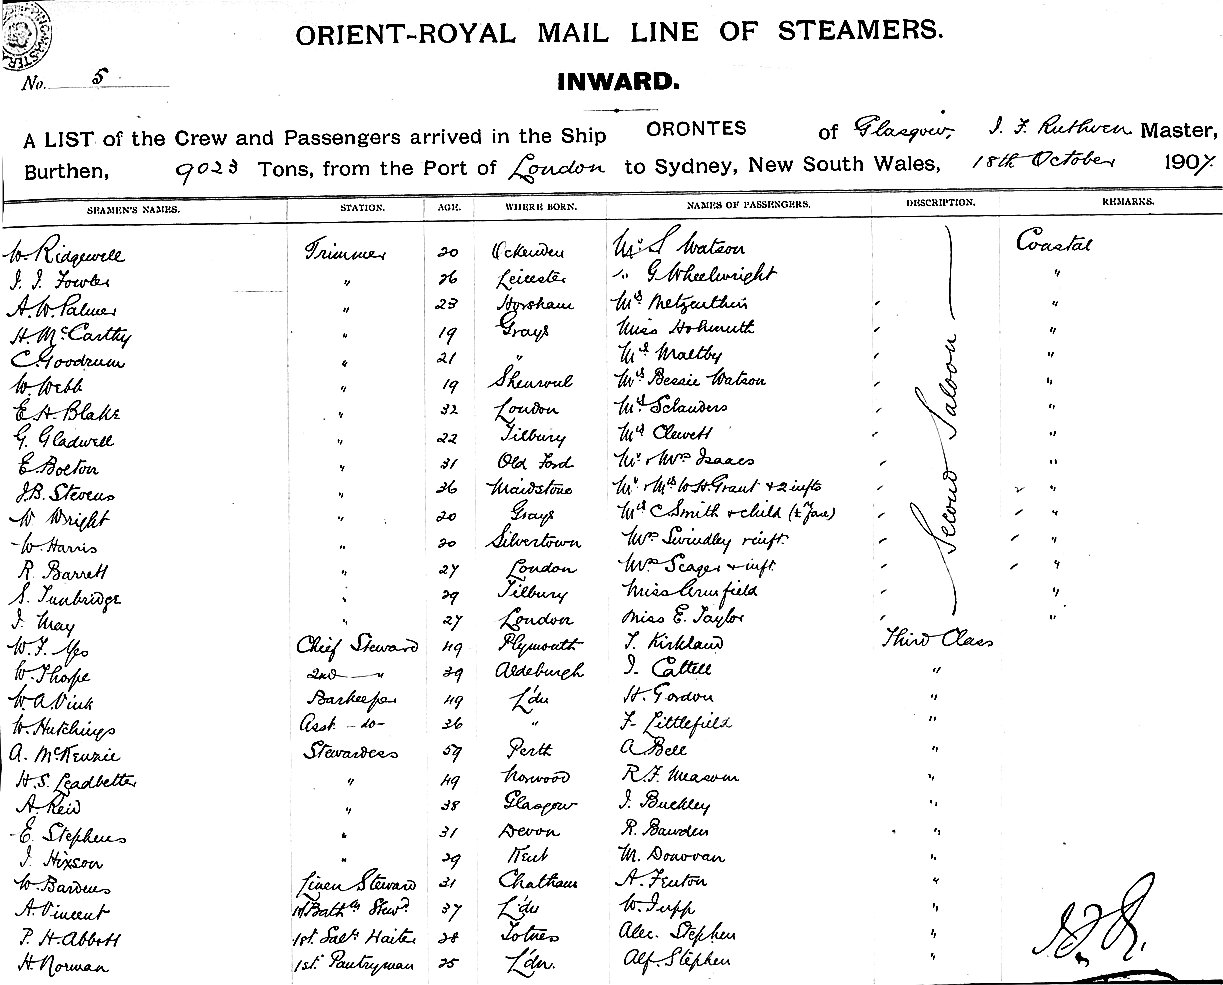 ORIENT-ROYAL MAIL LINE OF STEAMERS.
No. 5
INWARD.
A LIST of the Crew and Passengers arrived in the Ship ORONTES of Glasgow, J. F. Ruthven Master,
Burthen, 9023 Tons, from the Port of London to Sydney, New South Wales, 18th October 1907.
SEAMEN'S NAMES. STATION. AGE. WHERE BORN. NAMES OF PASSENGERS. DESCRIPTION. REMARKS.
W Ridgewell Trimmer 20 Ockenden Mr S Watson Second Saloon Coastal
J. J. Fowler " 26 Leicester " G Wheelwright "
A. W. Palmer " 23 Horsham Mrs "
H. McCarthy " 19 Grays Miss Hohmuth "
C. Goodrum " 21 " Mrs Maltby "
W. Webb " 19 Mrs Bessie Watson "
E. A. Blake " 32 London Mrs Sclanders "
G. Gladwell " 22 Tilbury Mrs Clewett "
E. Bolton " 31 Old Ford Mr & Mrs Isaacs "
J. B. Stevens " 36 Maidstone Mr & Mrs W. H. Grant & 2 infts "
W Wright " 20 Grays Mrs C Smith & child (½ fare) "
W. Harris " 20 Silvertown Mrs Swindley & inft "
R. Barrett " 27 London Mrs Seager & inft "
S. Tunbridge " 29 Tilbury Miss Armfield "
J. May " 27 London Miss E. Taylor "
W. J. Chief Steward 49 Plymouth T. Kirkland Third Class
W. Thorpe 2nd " 39 Aldeburgh J. Cattell "
W. A. Vink Barkeeper 49 L'dn H. Gordon "
W. Hutchings Asst -do- 36 " F. Littlefield "
A. McKenzie Stewardess 59 Perth A Bell "
H. S. Leadbetter " 49 Norwood R. F. Measom "
A. Reid " 38 Glasgow J. Buckley "
E. Stephens " 31 Devon R. Bawden "
J. Hixson " 29 Kent M. Donovan "
W. Bardens Linen Steward 31 Chatham A. Fenton "
A. Vincent Bath Stewd 37 L'dn W. Jupp "
P. H. Abbott 1st Saln Waiter 28 Totnes Alec. Stephen "
H. Norman 1st Pantryman 25 L'dn. Alf. Stephen "
J.F.R.